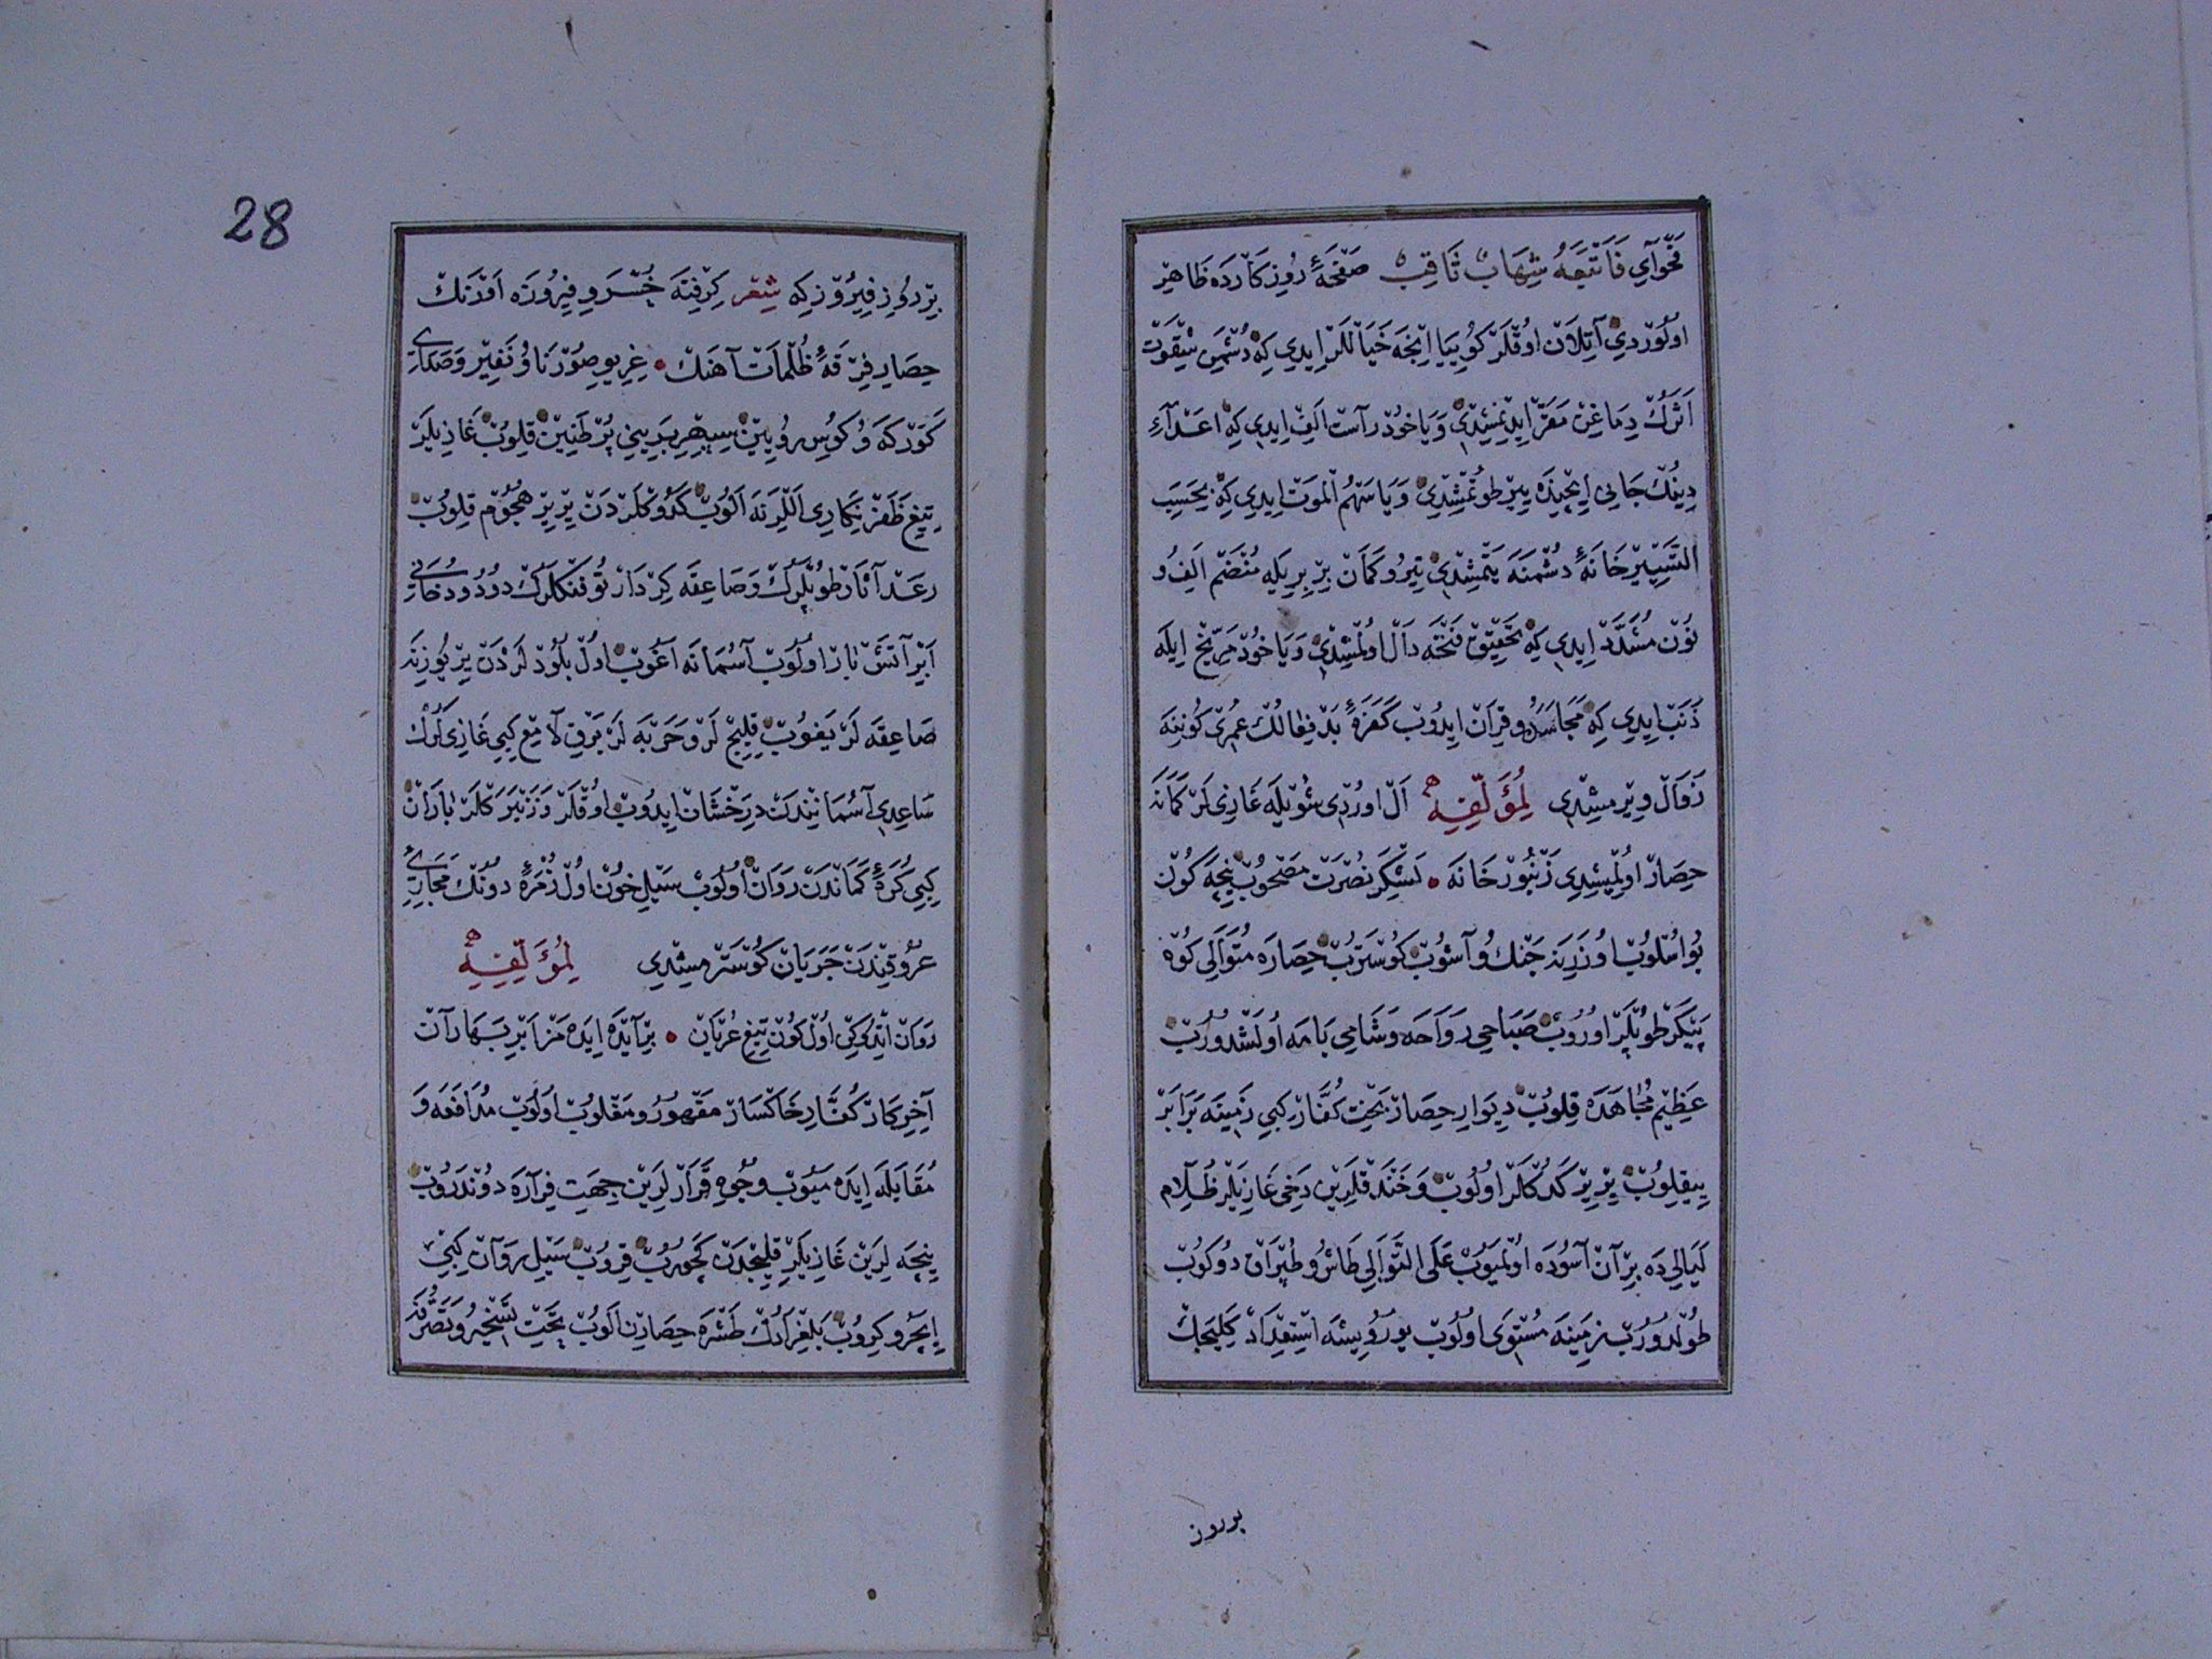 فَحْوَايِ فَاَتْبَعَهُ شِهَابٌ ثَاقِبٌ صَفْحَهٔ رُوزِكَارْدَه ظَاهِرْ
اولُوردِي آتِلَانْ اوُقْلَرْ كُويِيَا اِنْجَه خَيَاللَرْ ايدِي كِه دُشْمَنِ شَقَوَتْ
اَثَرُكْ دِمَاغِنْ مَقَرّ ايدِنْمِشِدِي وَيَا خُودْ رَاسْت اَلِفْ ايدِي كِه اَعْدَآءِ
دِينُكْ جَانِي اِيچِنْدَه يِيرْ طُوتْمِشِدِي وَيَا سَهْمُ الْمَوَتْ ايدِي كِه بِحَسَبِ
التَّسْيِيرْ خَانَهٔ دُشْمَنَه يَتْمِشِدِي تِيرُو كَمَانْ بِرْ بِرِيلَه مُنْضَمّ اَلِفُ و
نُونْ مُشَدَّدْ ايدِي كِه تَحْقِيقْ فَتْحَه دَالْ اولْمِشِدِي وَيَا خُودْ مِرِّيخْ ايلَه
ذَنَبْ ايدِي كِه مُجَاسَدَه و قِرَانْ ايدُوبْ كَفَرَهٔ بَدْ فِعَالُكْ عُمْرِي كُونِنَه
زَوَالْ ويرْمِشِدِي لِمُؤَلِّفِهِ اَلْ اورْدِي شُويْلَه غَازِي لَرْ كَمَانَه
حِصَارْ اولْمِشِدِي زَنْبُورْخَانَه • لَشْكَرِ نُصْرَتْ مَصْحُوبْ نِيچَه كُونْ
بُو اسْلُوبْ اوزَرِينَه جَنْك وُ آشُوبْ كُوسْتَرُبْ حِصَارَه مُتَوَالِي كُوه
پَيْكَرْ طُوپْلَرْ اورُوبْ صَبَاحِي رَوَاحَه وَ شَامِي بَامَه اُولَشْدُرُبْ
عَظِيمْ مُجَاهَدَه قِلُوبْ دِيوَارِ حِصَارْ بَخْتِ كُفَّارْ كِبِي زَمِينَه بَرَابَرْ
يِيقِلُوبْ يِرْ يِرْ كَدُكْلَرْ اولُوبْ وَ خَنْدَقْلَرِينْ دَخِي غَازِيلَرْ ظَلَامِ
لَيَالِي دَه بِرْ آنْ آسُودَه اولْمَيُوبْ عَلَى التَّوَالِي طَاشْ وُ طُپْرَاقْ دُوكُوبْ
طُولْدُورُبْ زَمِينَه مُسْتَوِي اولُوبْ يُورُويِيشَه اسْتِعْدَادْ كَلِيجَكْ
بر روز
28
بِرْ رُوزِ فِيرُوزْ كِه شِعْر كِرِفْتَه خُسْرَوِ فِيرُوزَه اَوْرَنْك
حِصَارِ فِرْقَهٔ ظُلْمَاتْ آهَنْك • غِرِيوِ صُورْنَا وُ نَفِيرْ وَ صَدَايِ
كَوْرَكَه وُ كُوسِ رُويِينْ سِپِهْرِ بَرِينِي پُرْ طَنِينْ قِلُوبْ غَازِيلَرْ
تِيغِ ظَفَرْ نِكَارِي اَللَّرِنَه اَلُوبْ كَدُوكْلَرْدَنْ يِرْ يِرْ هُجُومْ قِلُوبْ
رَعْد آثَارْ طُوپْلَرُكْ وَ صَاعِقَه كِرْدَارْ تُوفَنْكْلَرُكْ دُودُ و دُخَانِي
اَبْرِ آتَشْ بَارْ اولُوبْ آسُمَانَه آغُوبْ اولْ بُلُودْلَرْدَنْ يِرْ يُوزِينَه
صَاعِقَه لَرْ يَغُوبْ قِلِيچْ لَرْ و حَرْبَه لَرْ بَرْقِ لَامِعْ كِبِي غَازِي لَرُكْ
سَاعِدِي آسُمَانِنْدَنْ دِرَخْشَانْ ايدُوبْ اوُقْلَرْ وَ زَنْبَرَكْلَرْ بَارَانْ
كِبِي كُرَهٔ كَمَانْدَنْ رَوَانْ اولُوبْ سَيْلِ خُونْ اولْ زُمْرَهٔ دُونُكْ مَجَارِيِ
عُرُوقِنْدَنْ جَرَيَانْ كُوسْتَرْمِشِدِي لِمُؤَلِّفِهِ
رَوَانْ اتْدُوكِنْ اولْ كُونْ تِيغِ عُرْيَانْ • بِرْ آيْدَه ايدَه مَزْ اَبْرِ بَهَارَانْ
آخِرِ كَارْ كُفَّارِ خَاكْسَارْ مَقْهُورُ و مَغْلُوبْ اولُوبْ مُدَافَعَه وَ
مُقَابَلَه ايدَه مَيُوبْ وُجُوهِ قَرَارْلَرِينْ جِهَتِ فِرَارَه دُونْدَرُوبْ
نِيچَه لَرِينْ غَازِيلَرْ قِلِيچْدَنْ كَچُورُبْ قِرُوبْ سَيْلِ رَوَانْ كِبِي
اِيچَرُو كِرُوبْ بَلْغِرَادُكْ طَشْرَه حِصَارِنْ اَلُوبْ تَحْتِ تَسْخِيرُ و تَصَرُّفَه